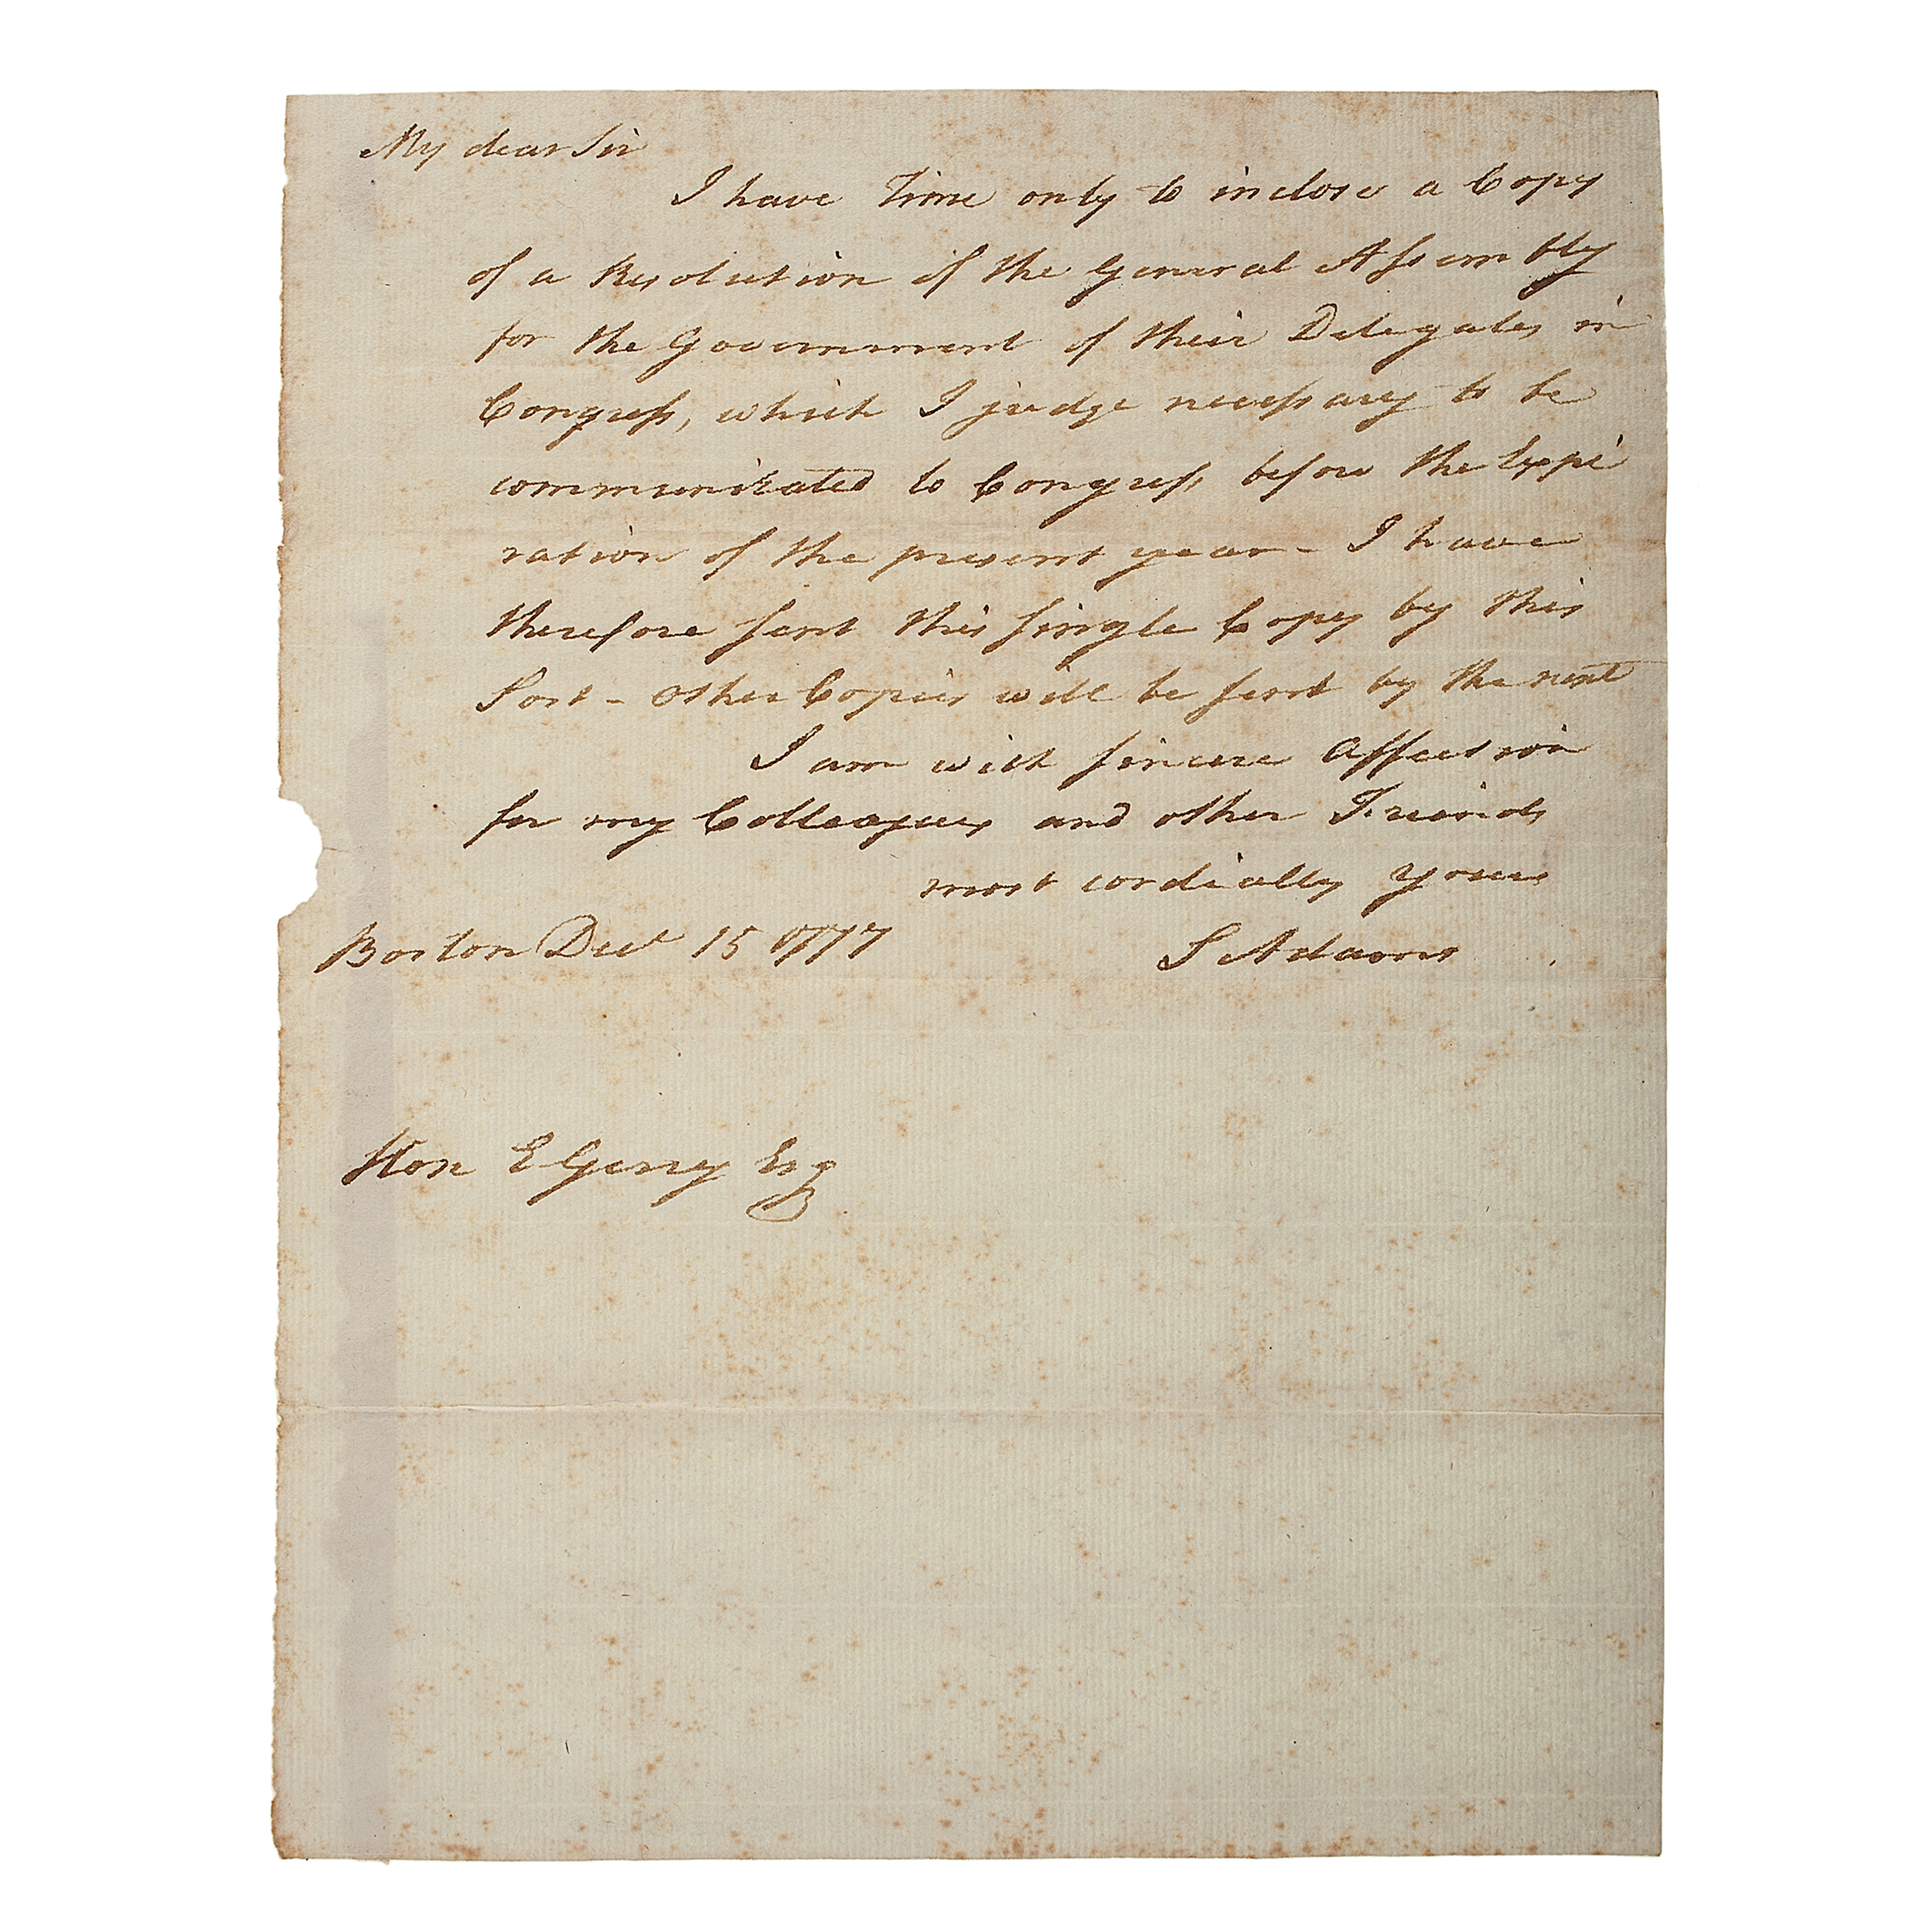 My dear Sir
I have Time only to inclose a Copy
of a Resolution of the General Assembly
for the Government of their Delegates in
Congress, which I judge necessary to be
communicated to Congress before the Expi
ration of the present year - I have
therefore sent this single Copy by this
Post - Other Copies will be sent by the next
I am with sincere Affection
for my Colleagues and other Friends
most cordially yours
Boston Decr 15 1777
S Adams
Hon E Gerry Esq